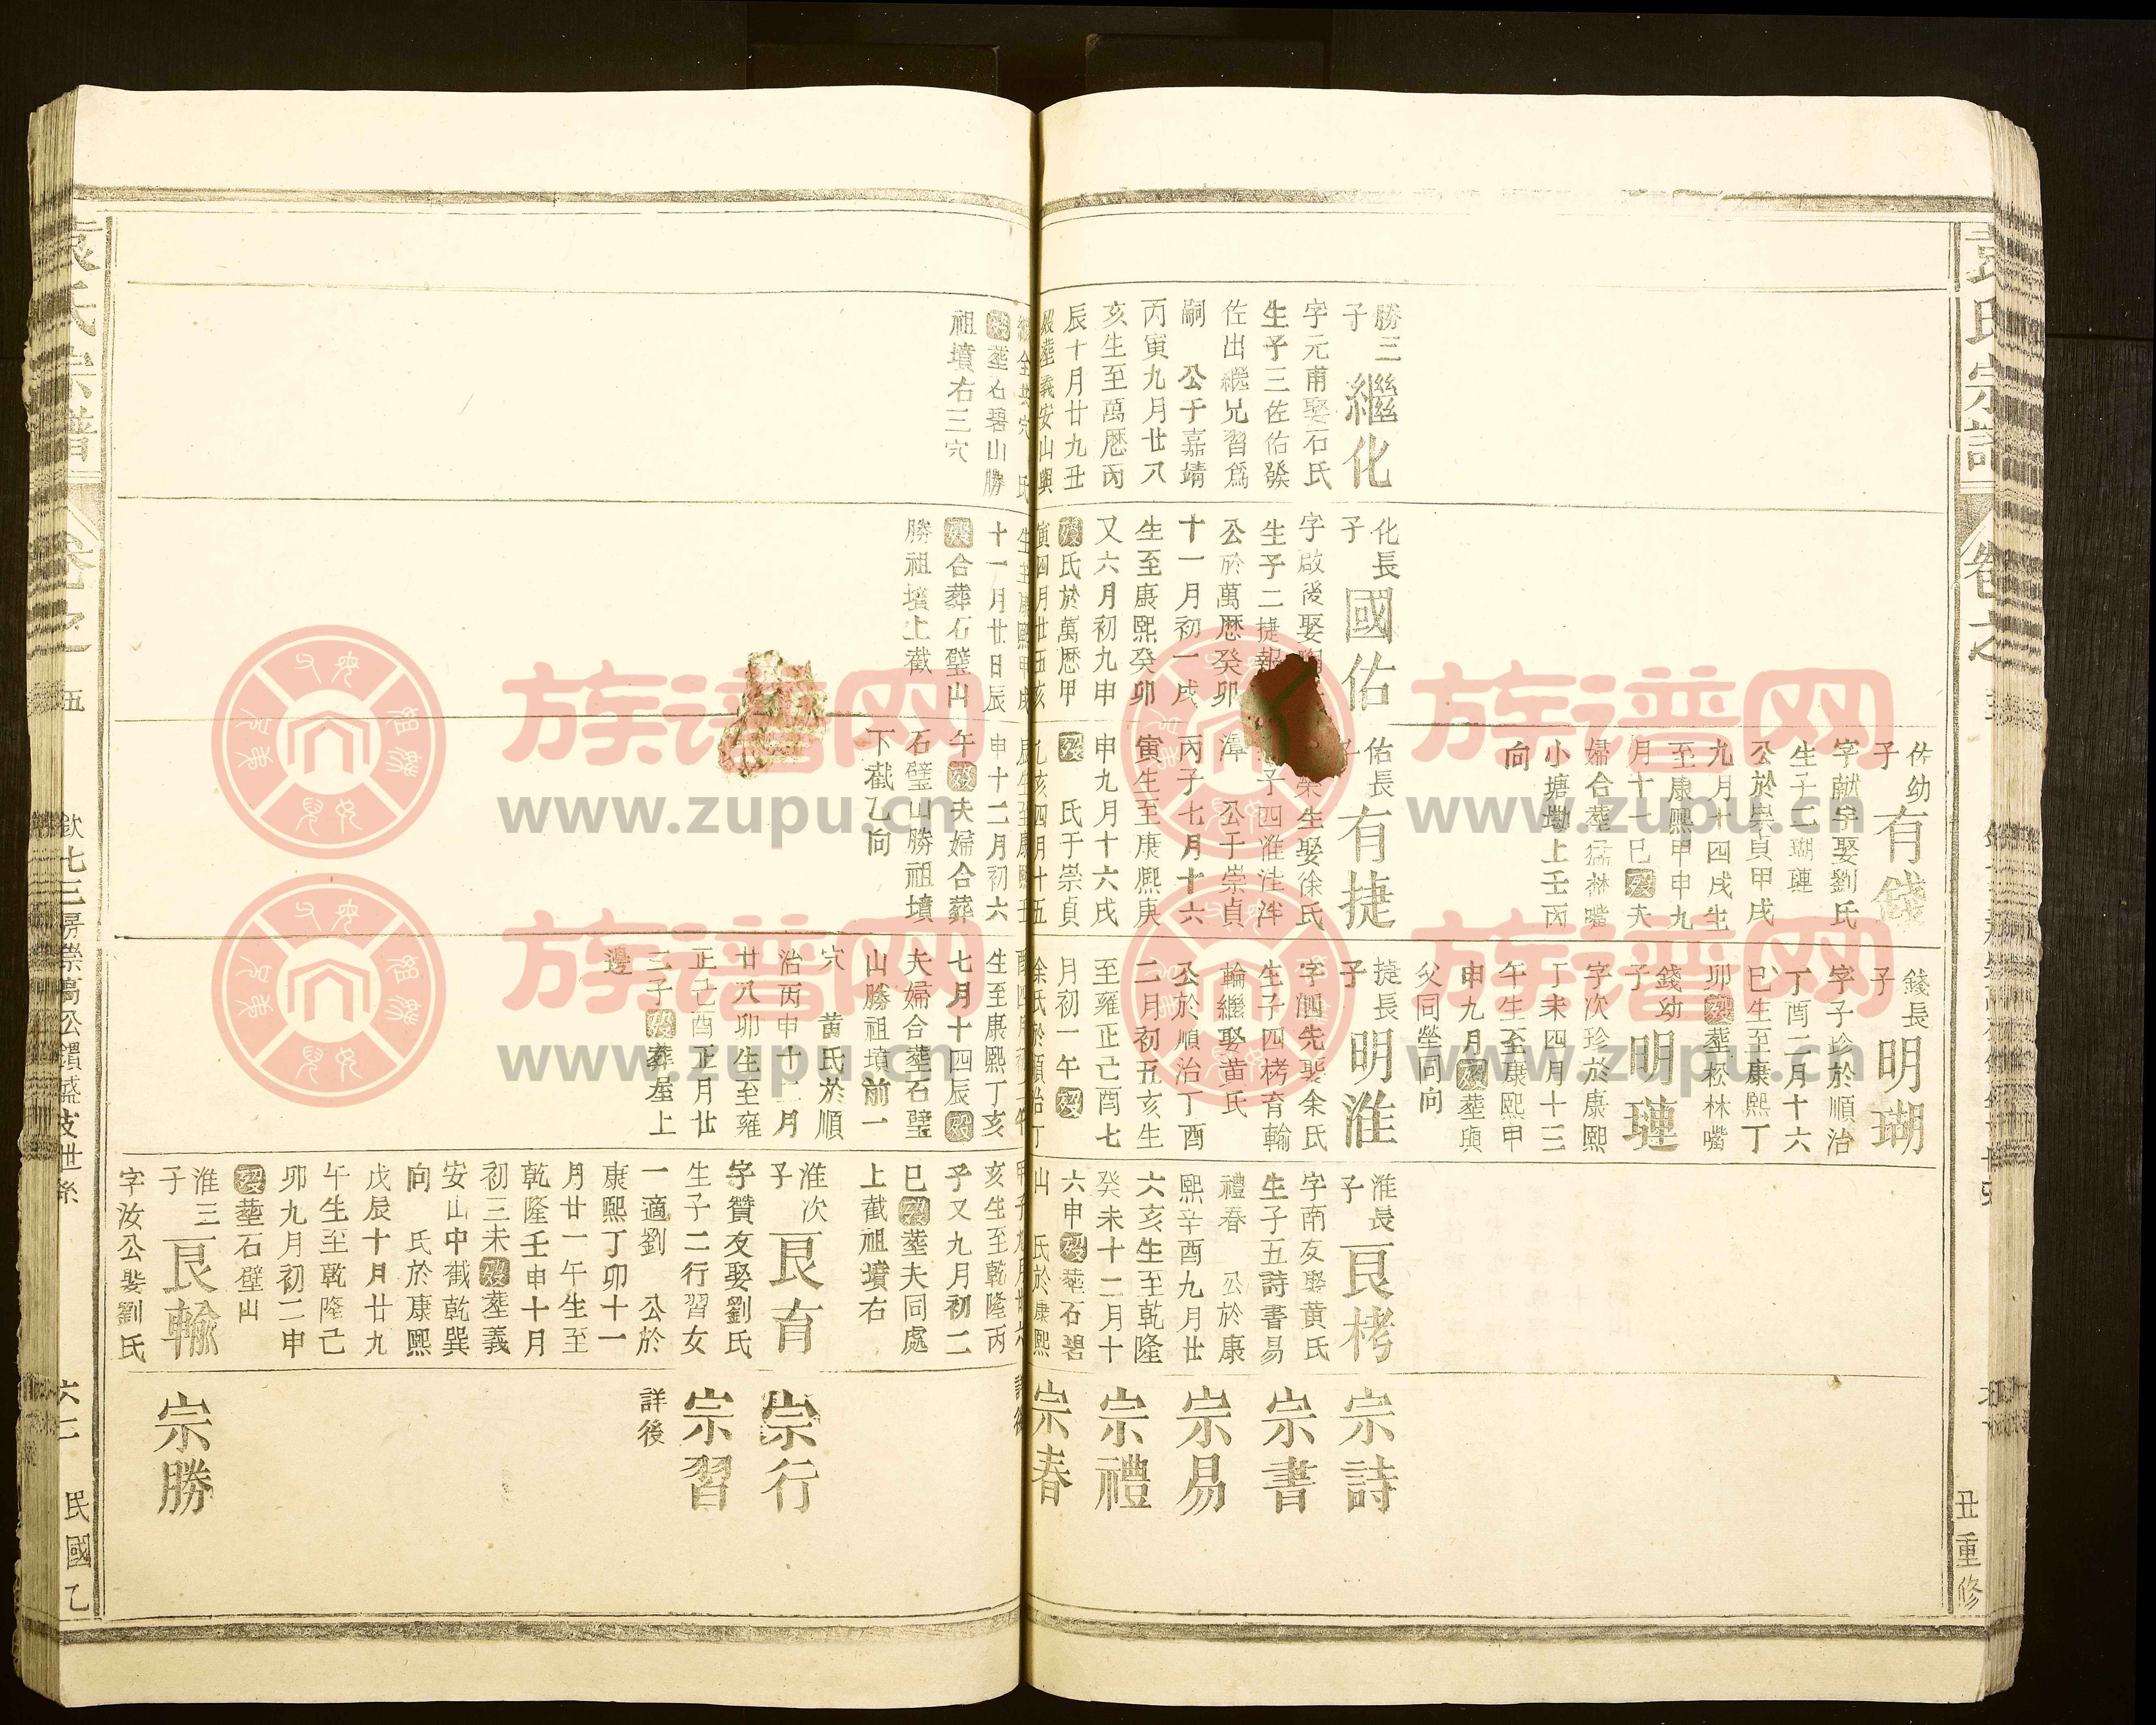 勝三
子
繼化
字元甫娶石氏
生子三佐佑發
佐出繼兄習爲
嗣 公于嘉靖
丙寅九月廿八
亥生至萬歷丙
辰十月廿九丑
歿葬義安山與
氏
歿葬石碧山勝
祖墳右三穴
化長
子
國佑
字啟後娶
生子二捷報
公於萬歷癸卯
十一月初一戌
生至康熙癸卯
又六月初九申
歿氏於萬歷甲
寅四月廿五亥
生至康熙甲戌
十一月廿日辰
歿合葬石璧山
勝祖墳上截
佐幼
子
有錢
字獻宇娶劉氏
生子二瑚璉
公於崇貞甲戌
九月十四戌生
至康熙甲申九
月十一巳歿夫
婦合葬猛林嘴
小塘墈上壬丙
向
佑長
子
有捷
榮生娶徐氏
子四淮注泮
潭 公于崇貞
丙子七月十六
寅生至康熙庚
申九月十六戌
歿 氏于崇貞
乙亥四月十五
辰生至康熙壬
申十二月初六
午歿夫婦合葬
石璧山勝祖墳
下截乙向
錢長
子
明瑚
字子珍於順治
丁酉二月十六
巳生至康熙丁
卯歿葬松林嘴
錢幼
子
明璉
字次珍於康熙
丁未四月十三
午生至康熙甲
申九月歿葬與
父同塋同向
捷長
子
明淮
字泗先娶余氏
生子四栲育輸
輪繼娶黄氏
公於順治丁酉
二月初五亥生
至雍正己酉七
月初一午歿
余氏於順治丁
酉四月初二午
生至康熙丁亥
七月十四辰歿
夫婦合葬石璧
山勝祖墳前一
穴 黄氏於順
治丙申十二月
廿八卯生至雍
正己酉正月廿
三子歿葬屋上
邊
淮長
子
艮栲
字南友娶黄氏
生子五詩書易
禮春 公於康
熙辛酉九月廿
六亥生至乾隆
癸未十二月十
六申歿葬石碧
山 氏於康熙
甲子九月廿六
亥生至乾隆丙
子又九月初二
巳歿葬夫同處
上截祖墳右
淮次
子
艮育
字贊友娶劉氏
生子二行習女
一適劉 公於
康熙丁卯十一
月廿一午生至
乾隆壬申十月
初三未歿葬義
安山中截乾巽
向 氏於康熙
戊辰十月廿九
午生至乾隆己
卯九月初二申
歿葬石璧山
淮三
子
艮輸
字汝公娶劉氏
宗詩
宗書
宗易
宗禮
宗春
詳後
宗行
宗習
詳後
宗勝
袁氏宗譜
卷之
丑重修
袁氏宗譜
卷之
五
欽七三房崇高公鐀盛支世系
六二
民國乙
族谱网
www.zupu.cn
族谱网
www.zupu.cn
族谱网
www.zupu.cn
族谱网
www.zupu.cn